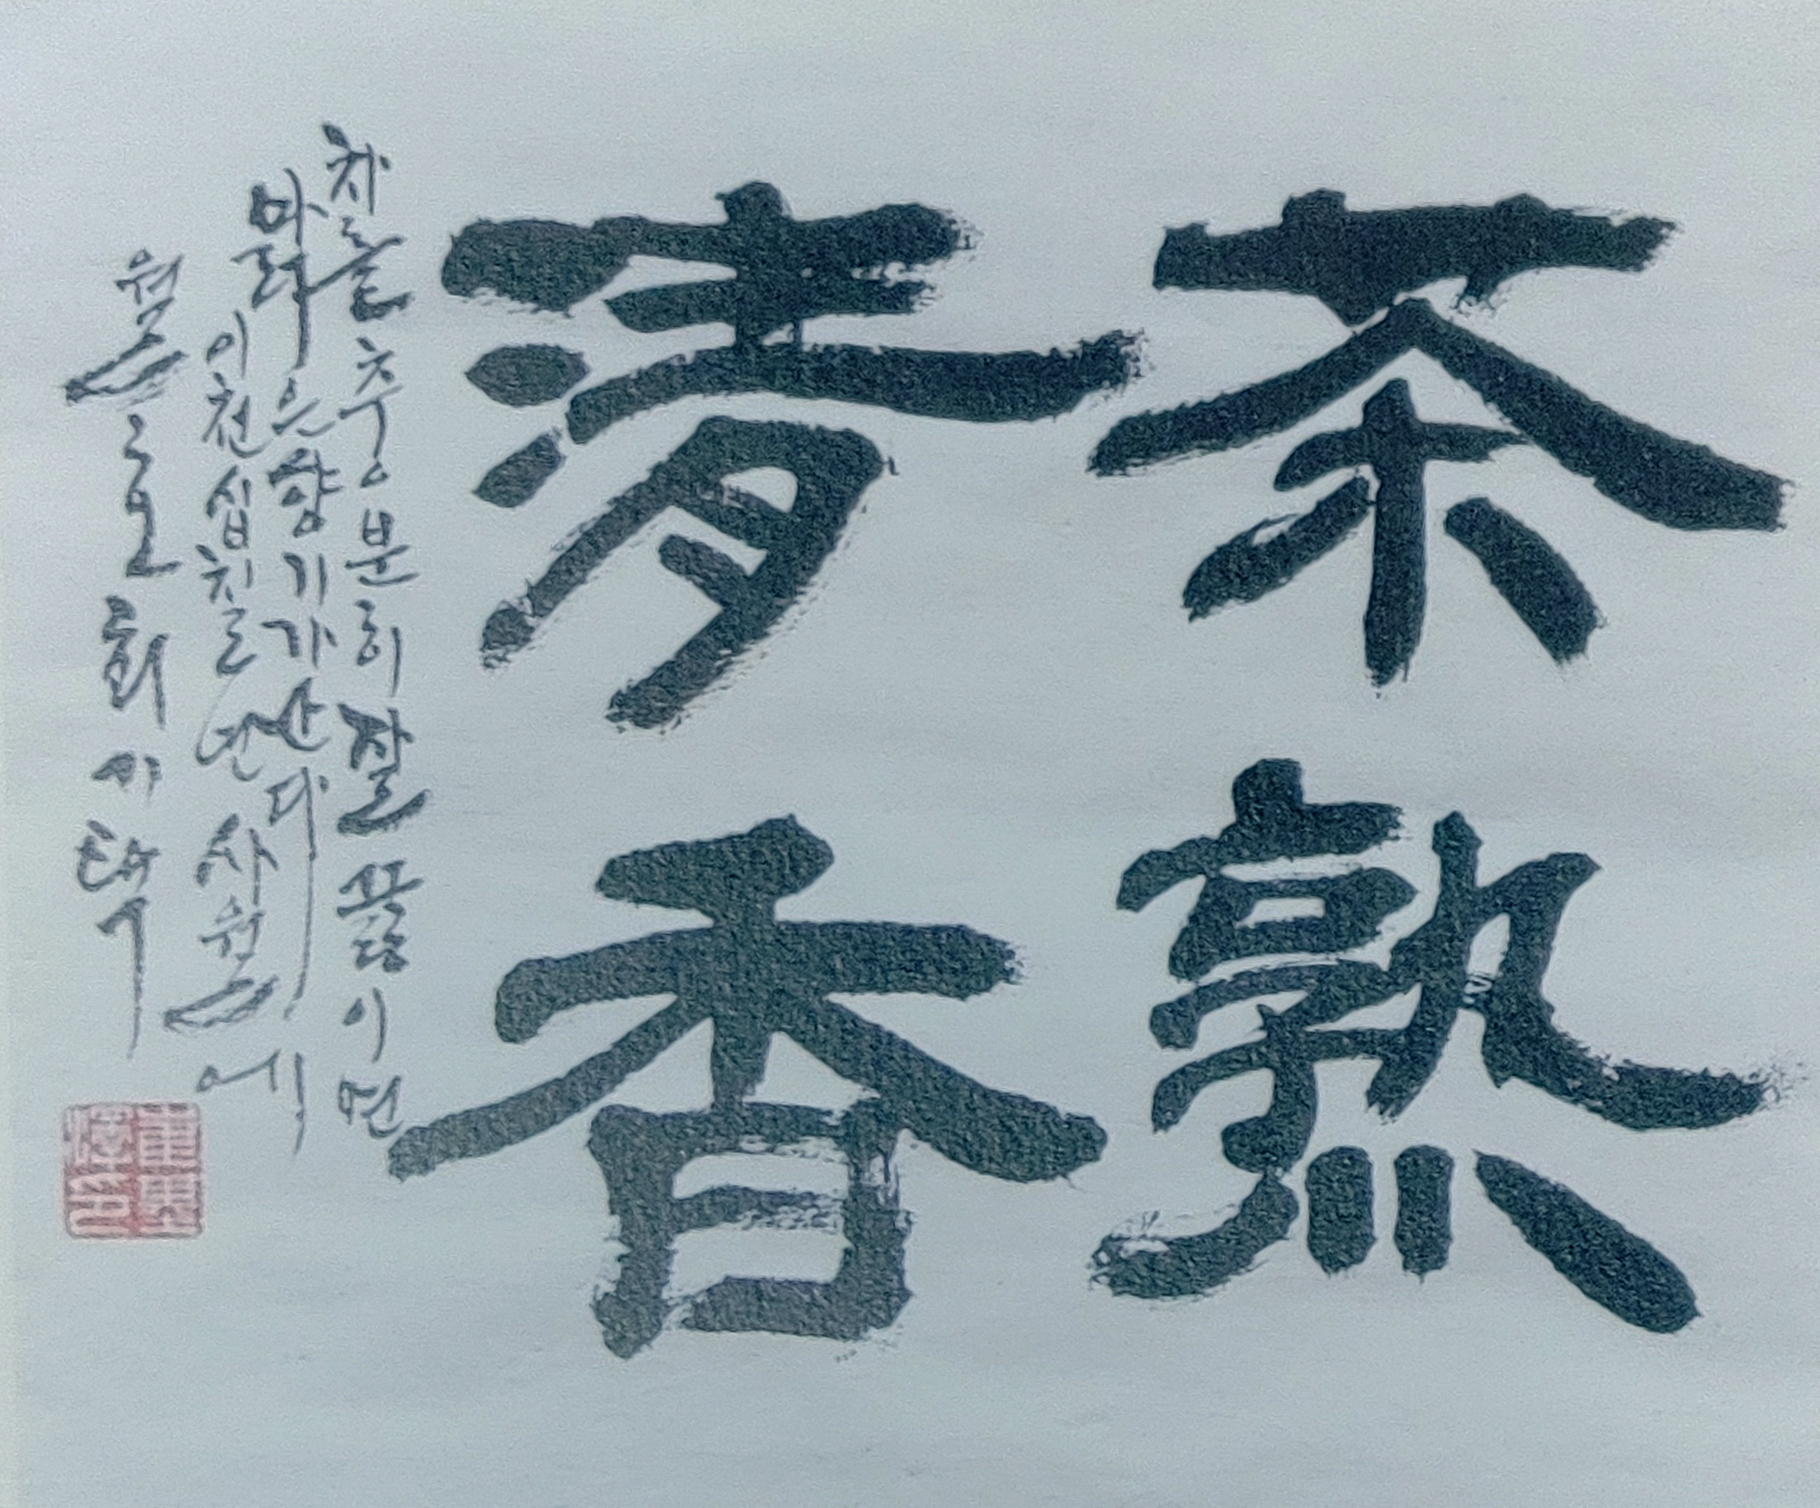 茶熟
清香
차를 충분히 잘 끓이면
맑은 향기가 난다
이천십칠년 사월에